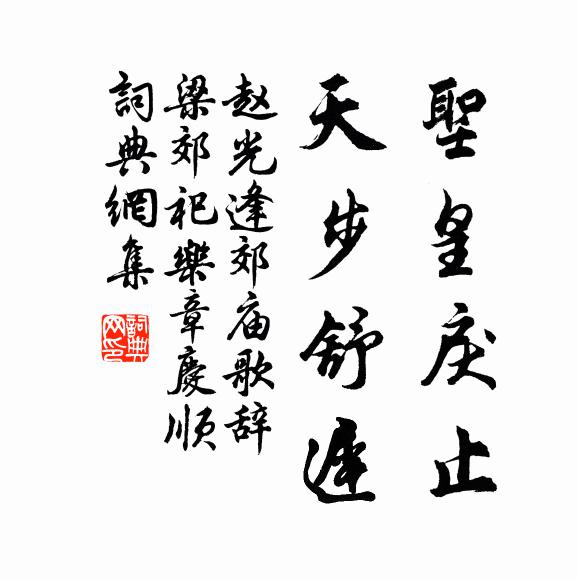 聖皇戾止
天步舒遲
赵光逢郊庙歌辞
梁郊祀樂章慶順
詞典網集
詞典网印